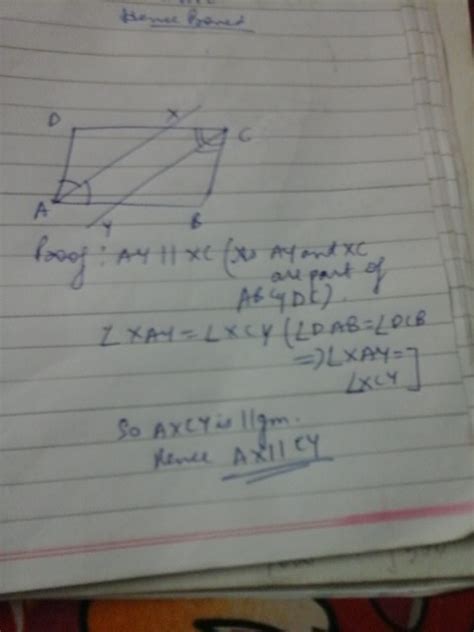 Hence Proved
D X C
A Y B
Proof : AY || XC ( AY and XC
are part of
AB & DC).
∠XAY = ∠XCY (∠DAB = ∠DCB
=> ∠XAY =
∠XCY]
So AXCY is ||gm.
Hence AX || CY